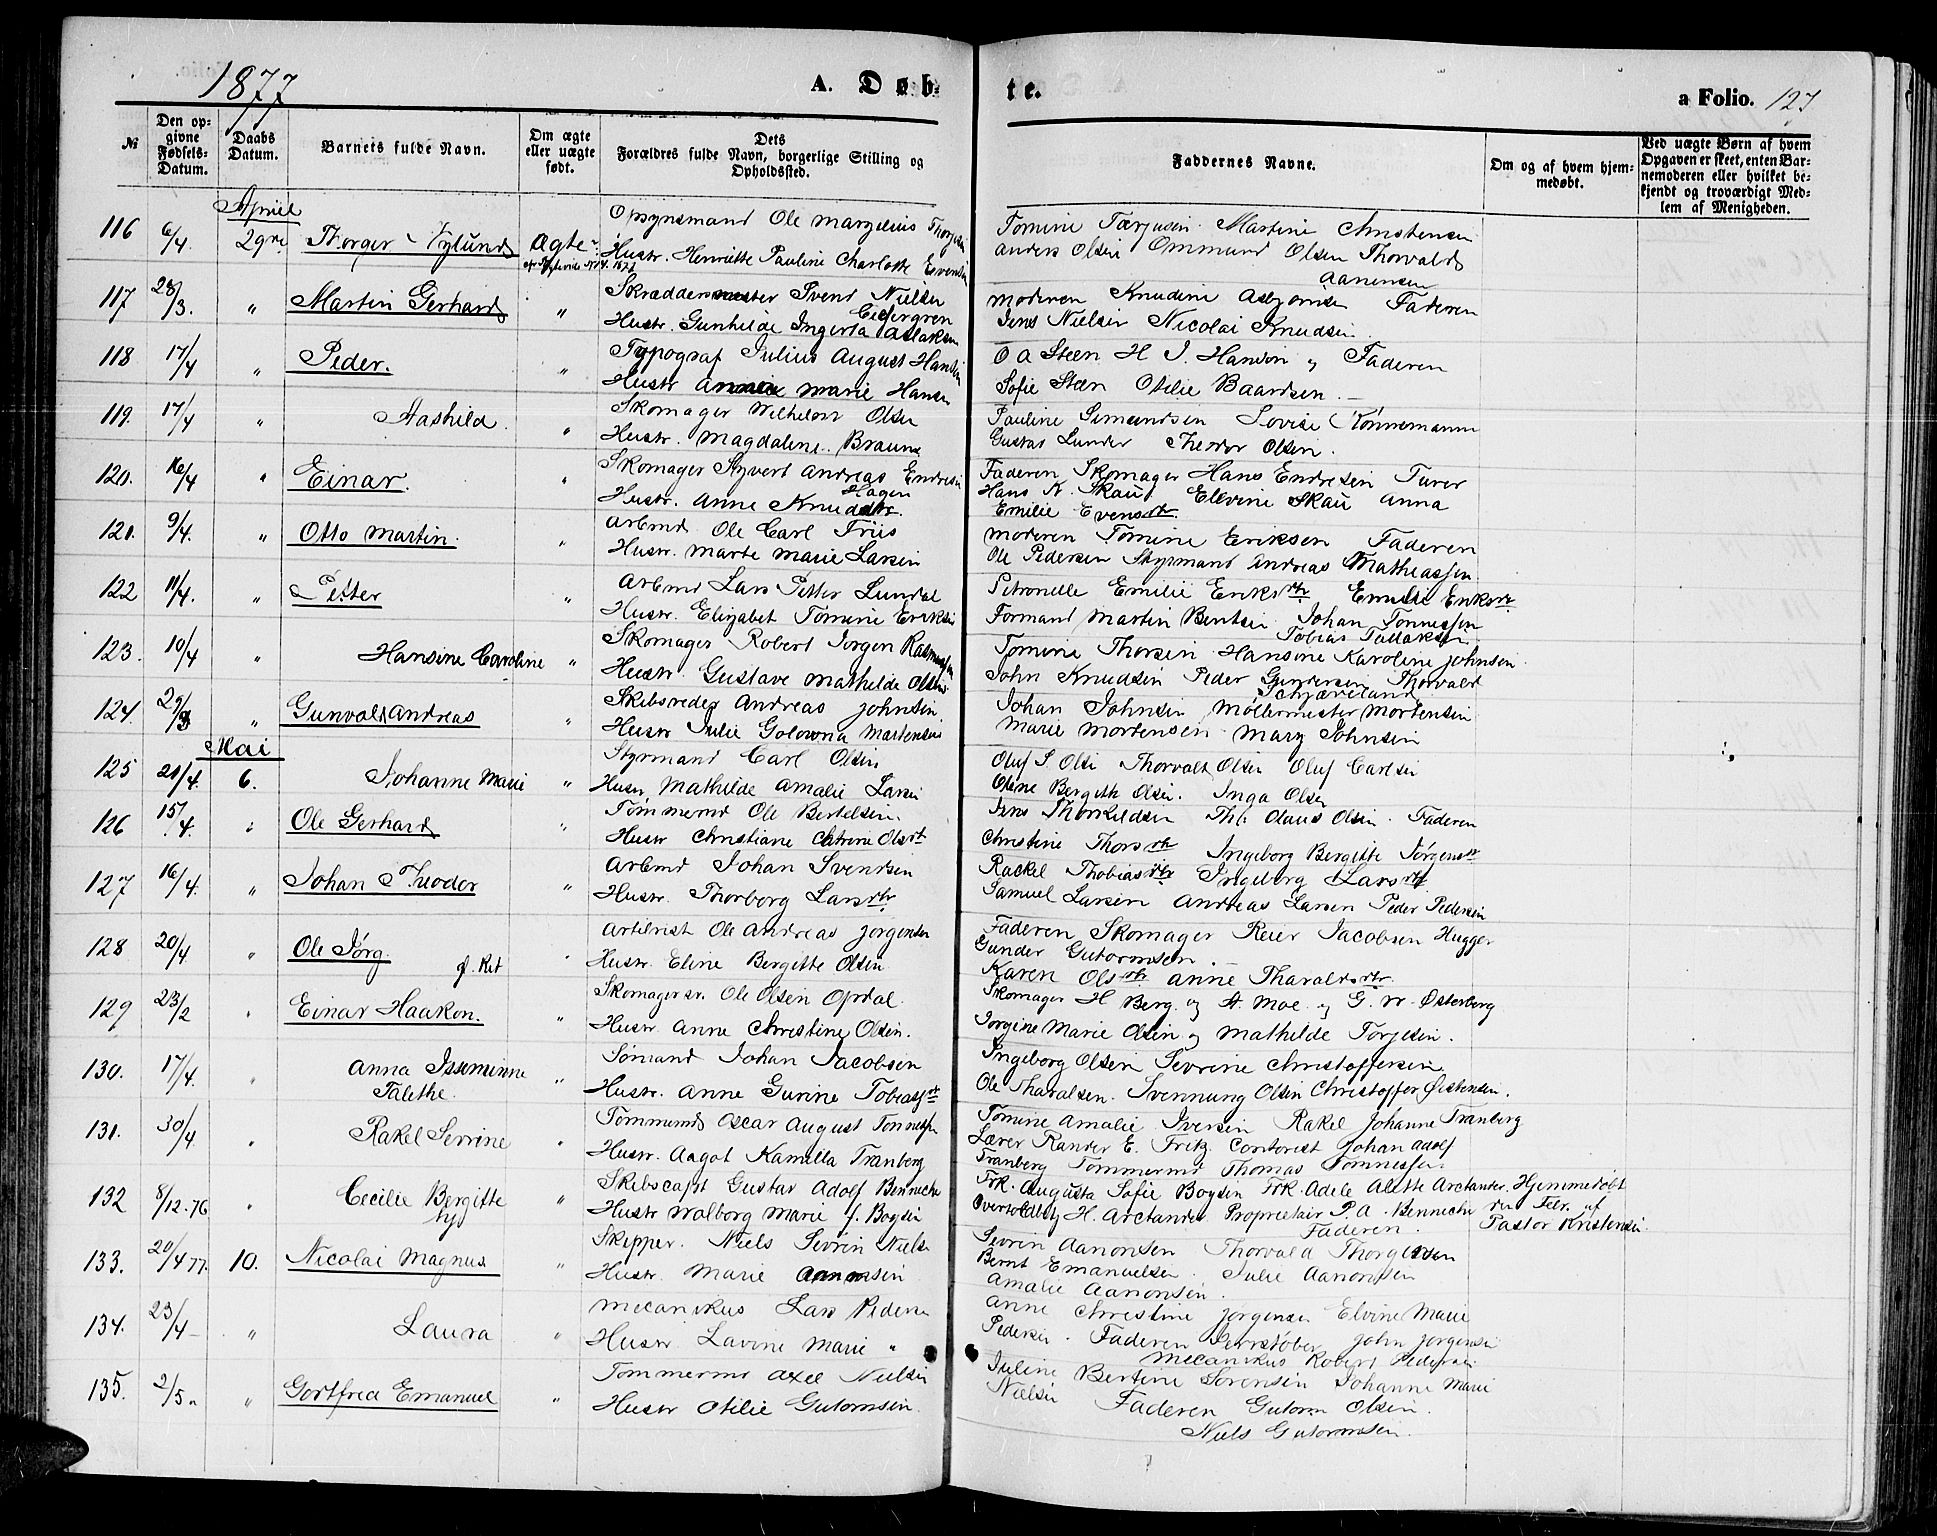 1877
A. Døb-
te.
a Folio. 127
№
Den opgivne Fødsels-Datum.
Daabs Datum.
Barnets fulde Navn.
Om ægte eller uægte født.
Dets Forældres fulde Navn, borgerlige Stilling og Opholdssted.
Faddernes Navne.
Om og af hvem hjemmedøbt.
Ved uægte Børn af hvem Opgaven er skeet, enten Barnemoderen eller hvilket bekjendt og troværdigt Medlem af Menigheden.
April
116 6/4 29de Thorger Nylund Ægte Opsynsmand Ole Margelius Thorjesen
Hustr. Henriette Pauline Charlotte Evensen
Tomine Tarjusen Martine Christensen
Anders Olsen Ommund Olsen Thorvald
Aanensen
117 28/3. " Martin Gerhard " Skræddermester Svend Nielsen
Cedergren
Hustr. Gunhilde Ingerta Aslaksen
Moderen Knudine Asbjørnsen Faderen
Jens Nielsen Nicolai Knudsen
118 17/4 " Peder. " Typograf Julius August Hansen
Hustr Marie Hansen
O A Steen H J. Hansen og Faderen
Sofie Steen Otilie Baardsen.
119. 17/4 " Aashild. " Skomager Wilhelm Olsen
Hustr. Magdalene Braune
Pauline Simundsen Lovise Kønnemann
Gustav Lunder Theodor Olsen.
120. 16/4 " Einar. " Skomager Syvert Andreas Endresen
Hagen
Hustr. Anne Knudsdtr.
Faderen Skomager Hans Endresen Turer
Hans K. Skau Ellevine Skau Anna
Emilie Evensdtr.
121. 9/4. " Otto Martin. " Arbmd Ole Carl Friis
Hustr. Marte Marie Larsen
Moderen Tomine Eriksen Faderen
Ole Pedersen Styrmand Andreas Mathiassen
122 11/4. " Petter " Arbmd Lars Petter Lundal
Hustr. Elizabet Tomine Eriksen
Petronelle Emilie Eriksdtr Emilie Eriksdtr
Formand Martin Bentsen Johan Tønnessen
Tobias Tallaksen
123. 10/4 " Hansine Caroline " Skomager Robert Jørgen Rasmussen
Hustr. Gustave Mathilde Olsen
Tomine Thorsen Hansine Karoline Johnsen
John Knudsen Peder Gundersen Thorvald
Schjæveland
124. 29/3 " Gunvald Andreas " Skibsreder Andreas Johnsen
Hustr Julie Golowna Mortensen
Johan Johnsen Møllermester Mortensen
Marie Mortensen Mary Johnsen
Mai
125 21/4. 6. Johanne Marie " Styrmand Carl Olsen
Hustr Mathilde Amalie Larsen
Oluf S. Olsen Thorvald Olsen Oluf Carlsen
Oline Bergith Olsen. Inga Olsen
126 15/4. " Ole Gerhard " Tømmermd Ole Bertelsen.
Hustr Christiane Catrine Olsdt
Jens Thorkildsen Th. Olaus Olsen. Faderen
Christine Thorsdtr Ingeborg Bergitte Jørgensdtr
127 16/4. " Johan Theodor " Arbmd Johan Svendsen
Hustr. Thorborg Larsdtr
Rackel Thobiasdtr Ingeborg Larsdtr
Samuel Larsen Andreas Larsen Peder Pedersen
128 20/4 " Ole Jörg. Artilrist Ole Andreas Jørgensen
Hustr. Eline Bergitte Olsen
Faderen Skomager Reier Jacobsen Hugger
Gunder Gutormsen
Karen Olsdtr Anne Tharaldsdtr
129 23/2 " Einar Haakon. " Skomagersv. Ole Olsen Opdal.
Hustr. Anne Christine Olsen.
Skomager H Berg. og A. Moe. og G. W. Østerberg
Jorgine Marie Olsen og Mathilde Torjesen.
130. 17/4. " Anna Issminne " Sømand Johan Jacobsen
Talethe. Hustr. Anne Gurine Tobiasdt
Ingeborg Olsen Sevrine Christoffersen
Ole Tharalsen. Svennung Olsen Christoffer Øistensen.
131. 30/4. " Rakel Sevrine " Tømmermd Oscar August Tønnessen
Hustr. Aagot Kamilla Tranberg
Tomine Amalie Iversen Rakel Johanne Tranberg
Lærer Rander E. Fritz Contorist Johan Adolf
Tranberg Tømmermd Thomas Tønnessen
132 8/12.76 " Cecilie Bergitte " Skibscapt Gustav Adolf Benneche
Hustr Walborg Marie f. Boysen
Frk. Augusta Sofie Boysen Frk. Adele Alette Arctander.
H. Arctander Proprietair P. A. Benneche
Faderen.
Hjemmedøbt
Febr. af
Pastor Kristensen
133. 20/4 77. 10. Nicolai Magnus " Skipper. Niels Sevrin Nielsen
Hustr. Marie Aanonsen
Sevrin Aanonsen Thorvald Thorgersen
Bernt Emanuelsen. Julie Aanonsen
Amalie Aanonsen.
134. 23/4 " Laura " Mecanikus Lars Pedersen
Hustr. Lavine Marie "
Anne Christine Jørgensen Elvine Marie
Pedersen. Faderen Jernstøber John Jørgensen
Mecanikus Robert Pedersen
135. 2/5 " Gottfred Emanuel " Tømmermd Axel Nielsen
Hustr Otilie Gutormsen.
Juline Bertine Sørensen Johanne Marie
Nielsen Faderen Gutorm Olsen.
Niels Gutormsen.